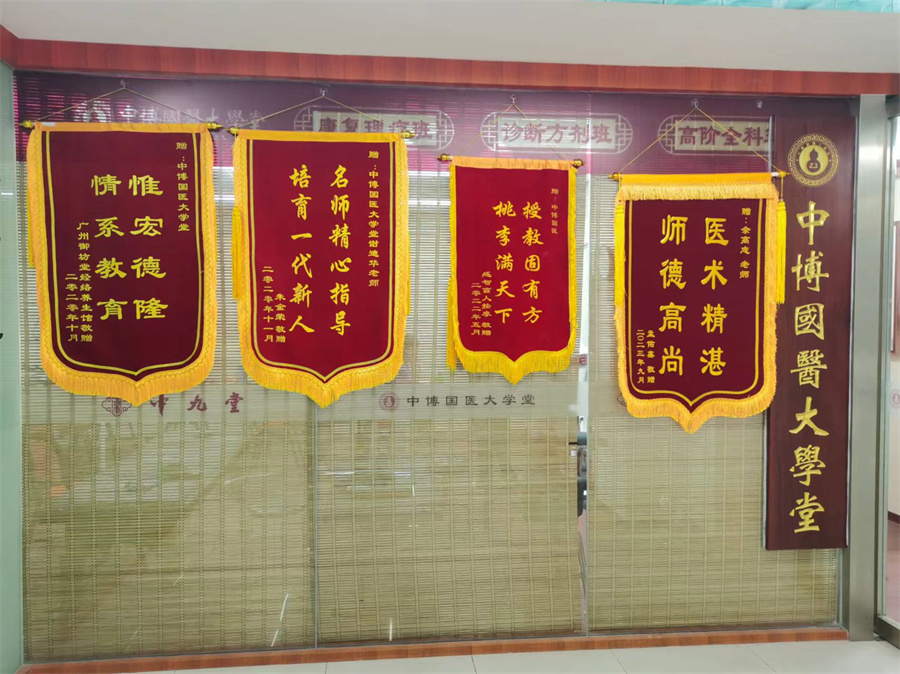 中博國醫大學堂
康复理疗班
诊断方剂班
高阶全科班
赠:中博国医大学堂
惟宏德隆
情系教育
广州御坊堂经络养生馆敬赠
二零二零年十月
赠:中博国医大学堂谢建华老师
名师精心指导
培育一代新人
朱金荣敬赠
二零二零年十一月
赠:中博国医
授教固有方
桃李满天下
盲人按摩 敬赠
二零二二年五月
赠:余高志 老师
医术精湛
师德高尚
孟佑嘉 敬赠
二〇二三年九月
中九堂
中博国医大学堂
中博國醫大學堂